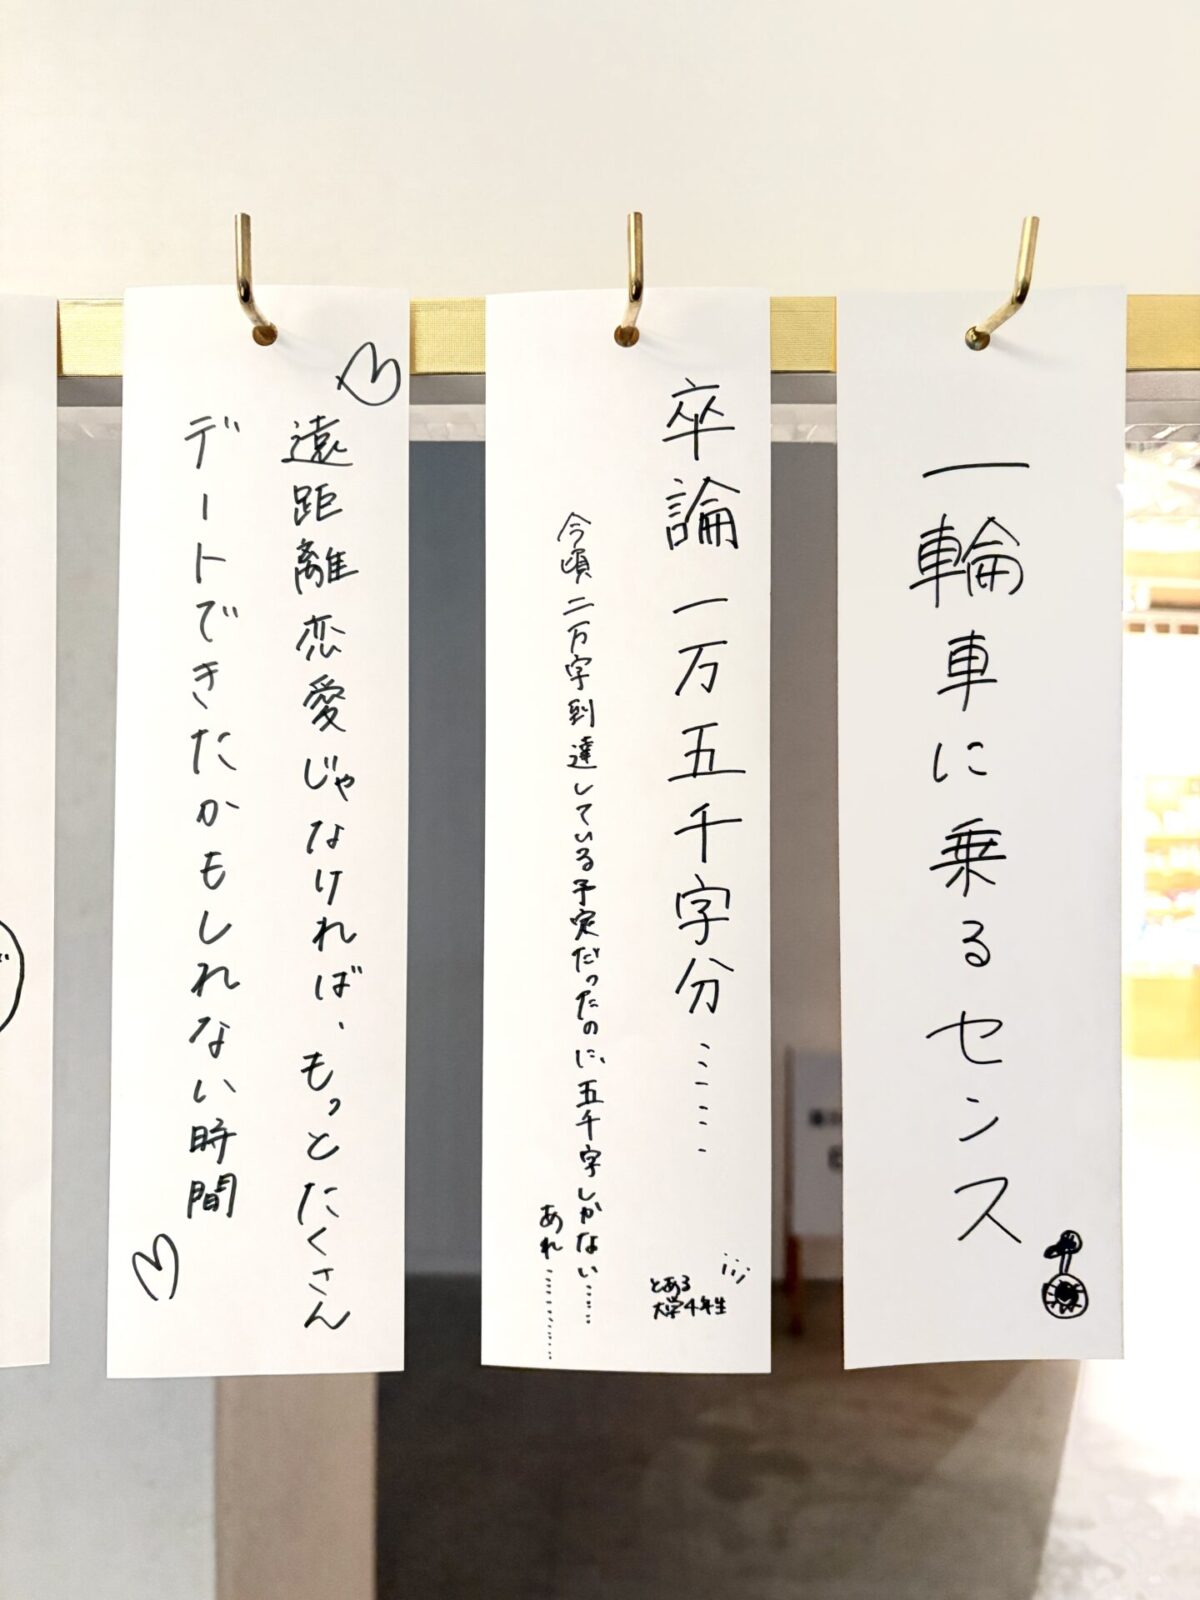 一輪車に乗るセンス
卒論一万五千字分……
今頃二万字到達している予定だったのに、五千字しかない……
あれ…………
とある
大学4年生
遠距離恋愛じゃなければ、もっとたくさん
デートできたかもしれない時間